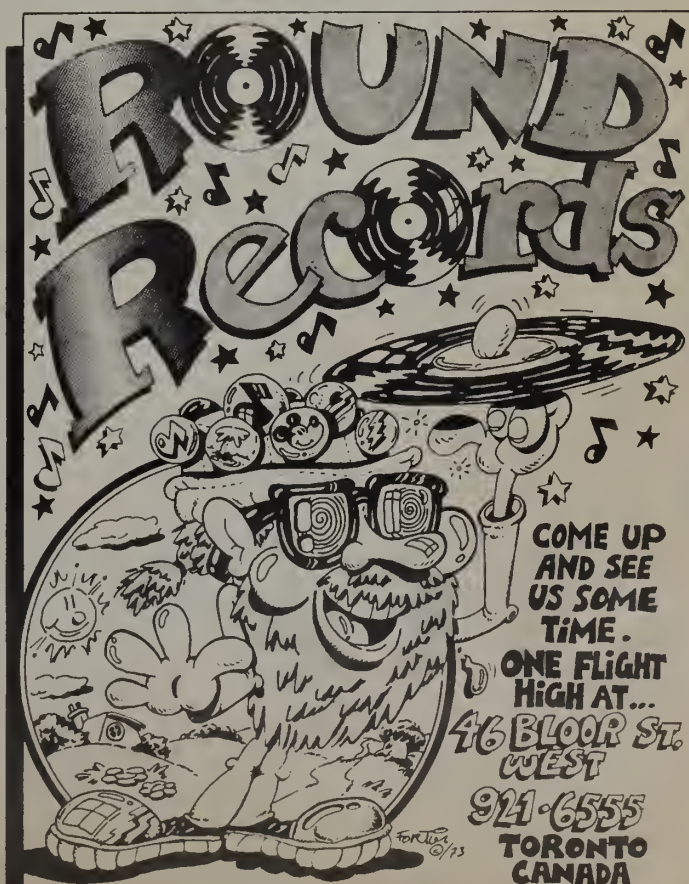 ROUND
Records
COME UP
AND SEE
US SOME
TiME.
ONE FLiGHT
HiGH AT...
46 BLOOR ST.
WEST
921-6555
TORONTO
CANADA
©/73